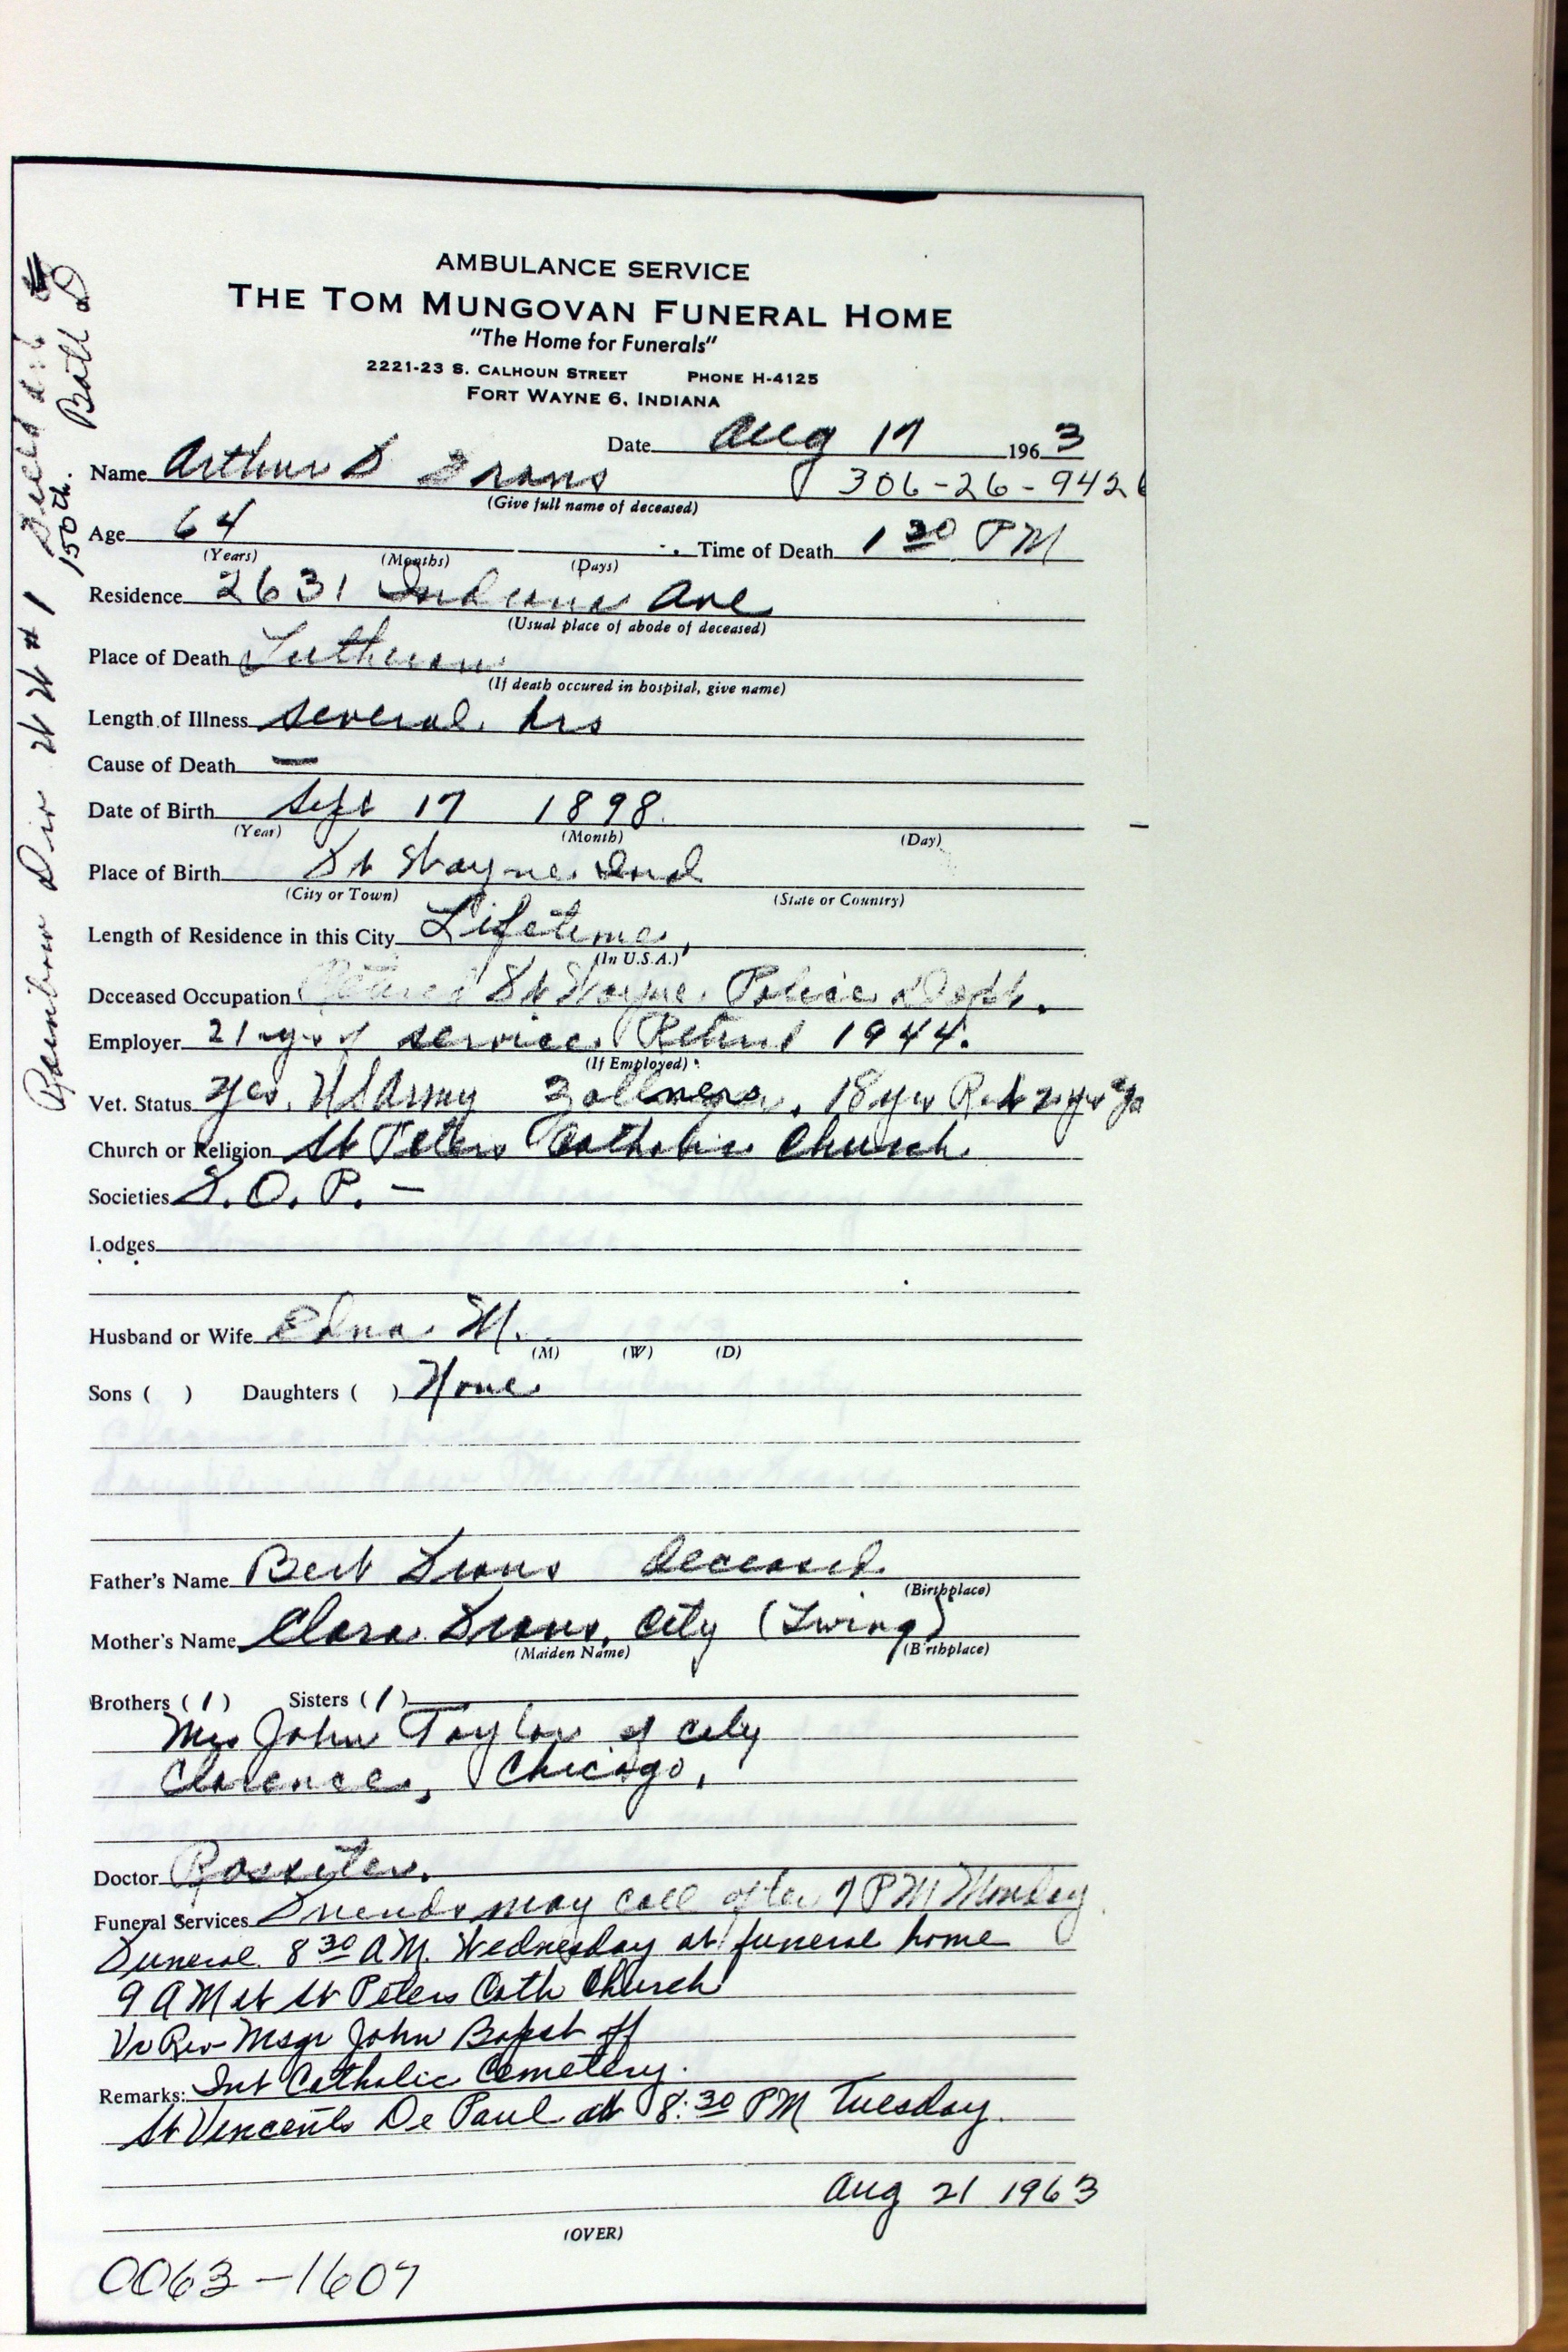 AMBULANCE SERVICE
THE TOM MUNGOVAN FUNERAL HOME
"The Home for Funerals"
2221-23 S. CALHOUN STREET PHONE H-4125
FORT WAYNE 6, INDIANA
Date Aug 17 1963
Name Arthur
306-26-942
(Give full name of deceased)
Age 64 Time of Death 1 30 PM
(Years) (Months) (Days)
Residence 2631 Indiana Ave
(Usual place of abode of deceased)
Place of Death Lutheran
(If death occured in hospital, give name)
Length of Illness several hrs
Cause of Death —
Date of Birth Sept 17 1898
(Year) (Month) (Day)
Place of Birth Ft Wayne Ind
(City or Town) (State or Country)
Length of Residence in this City Lifetime,
(In U.S.A.)
Deceased Occupation Retired Ft Wayne Police Dept.
Employer 21 yrs of service Retired 1944.
(If Employed)
Vet. Status Yes, US Army Zollners, 18 yrs Ret 2 yrs ago
Church or Religion St Peters Catholic Church
Societies F.O.P. —
Lodges
Husband or Wife Edna M.
(M) (W) (D)
Sons ( ) Daughters ( ) None
Father's Name Bert deceased
(Birthplace)
Mother's Name Clara City (Living)
(Maiden Name) (Birthplace)
Brothers (1) Sisters (1)
Mrs John Taylor of City
Clarence, Chicago,
Doctor Rossiter.
Funeral Services Friends may call after 7 PM Monday
Funeral 8 30 AM Wednesday at funeral home
9 AM at St Peters Cath Church
Vr Rev Msgr John Bapst off
Remarks: Int Catholic Cemetery.
St Vincents De Paul at 8:30 PM Tuesday
Aug 21 1963
(OVER)
0063-1607
Rainbow Div WW #1 Field
150th. Batt D